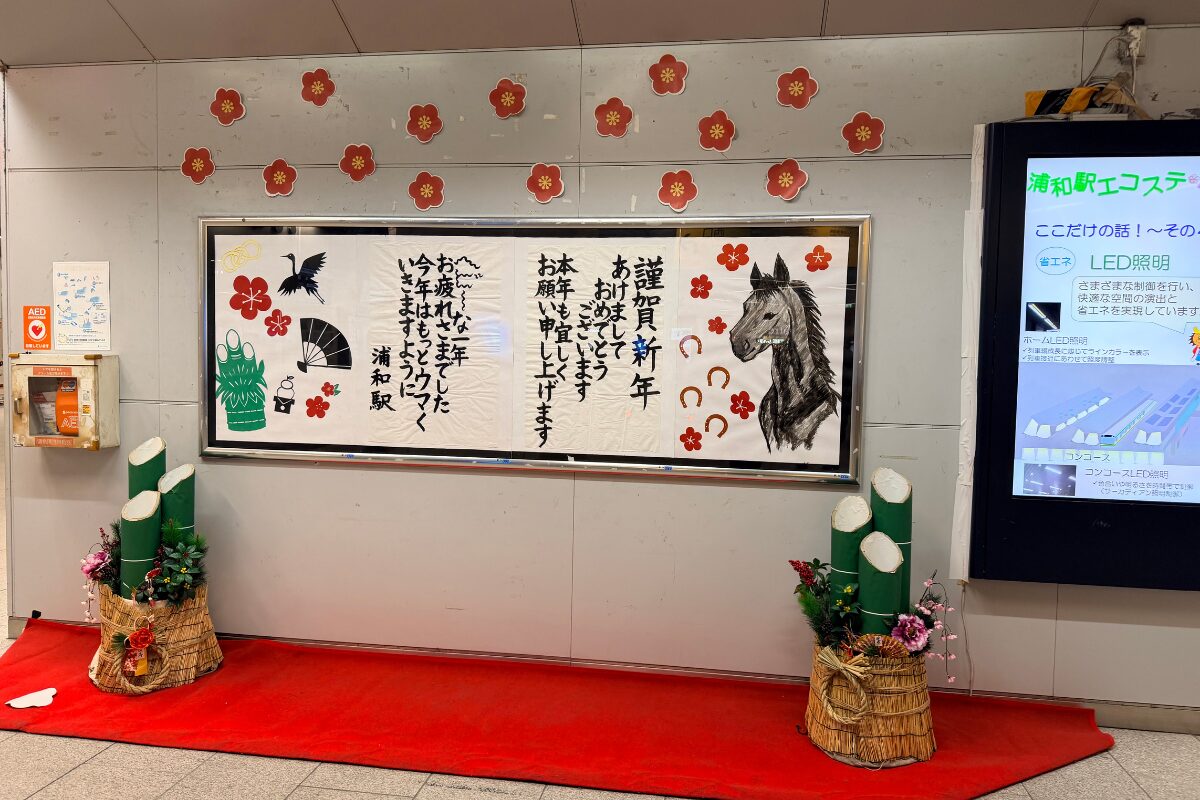 謹賀新年
あけまして
おめでとう
ございます
本年も宜しく
お願い申し上げます
な一年
お疲れさまでした
今年はもっとウマく
いきますように
浦和駅
AED
AED
浦和駅エコステ
ここだけの話！～その
省エネ
LED照明
さまざまな制御を行い、
快適な空間の演出と
省エネを実現しています
ホームLED照明
コンコース
コンコースLED照明